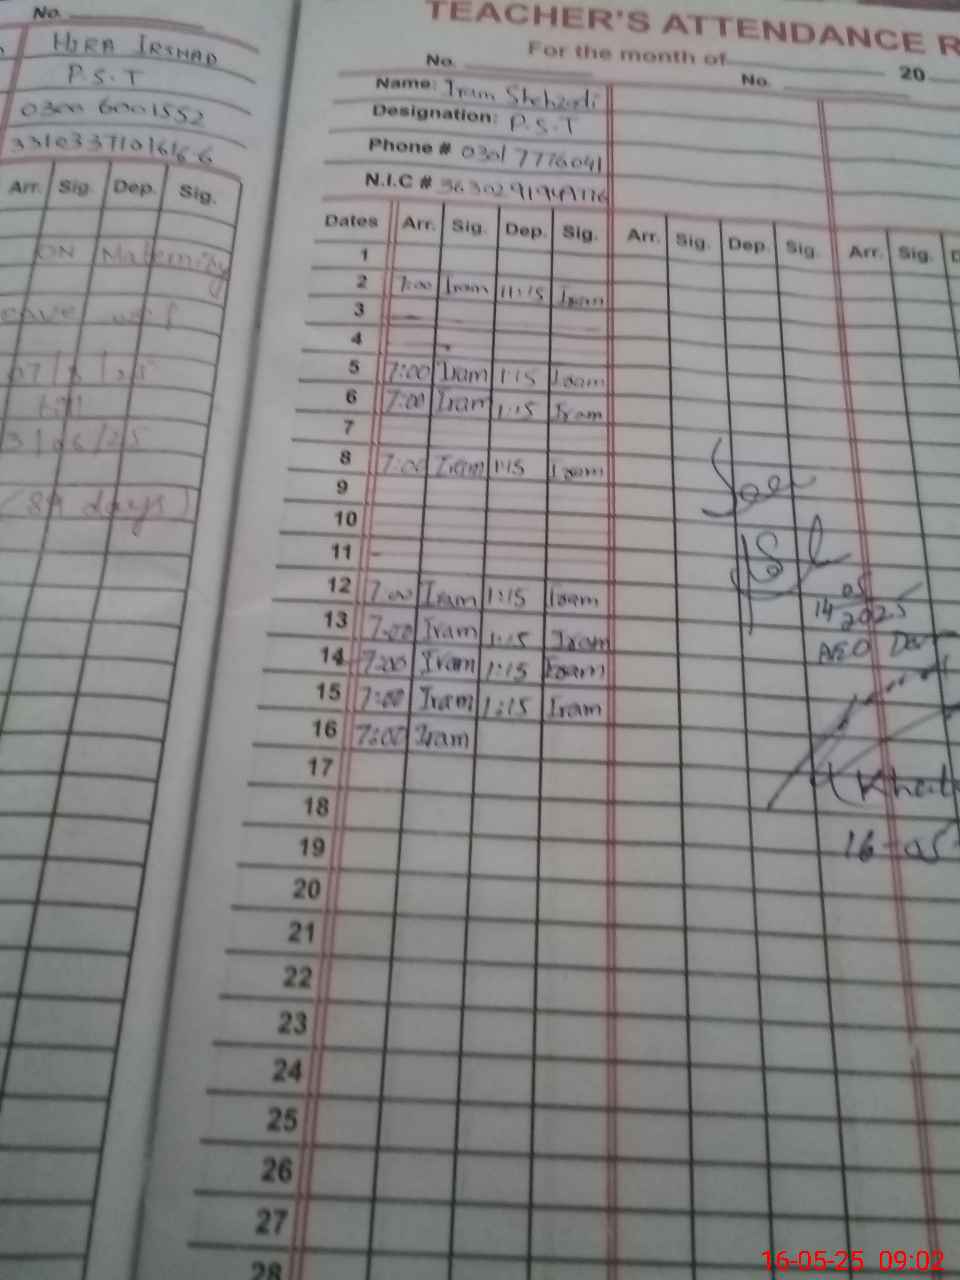 No.
HIRA IRSHAD
P.S.T
0300 6001552
Arr. Sig. Dep. Sig.
ON Maternity
(89 days)
TEACHER'S ATTENDANCE R
For the month of 20
No. No.
Name: Iram Shehzadi
Designation: P.S.T
Phone # 0301 7776041
N.I.C #
Dates Arr. Sig. Dep. Sig. Arr. Sig. Dep. Sig. Arr. Sig. D
1
2 7:00 Iram 11:15 Iram
3
4
5 7:00 Iram 1:15 Iram
6 7:00 Iram 1:15 Iram
7
8 7:00 Iram 1:15 Iram
9
10
11
12 7:00 Iram 1:15 Iram
13 7:00 Iram 1:15 Iram
14 7:00 Iram 1:15 Iram
15 7:00 Iram 1:15 Iram
16 7:00 Iram
17
18
19
20
21
22
23
24
25
26
27
28
14 05 2025
AEO
16-05
16-05-25 09:02